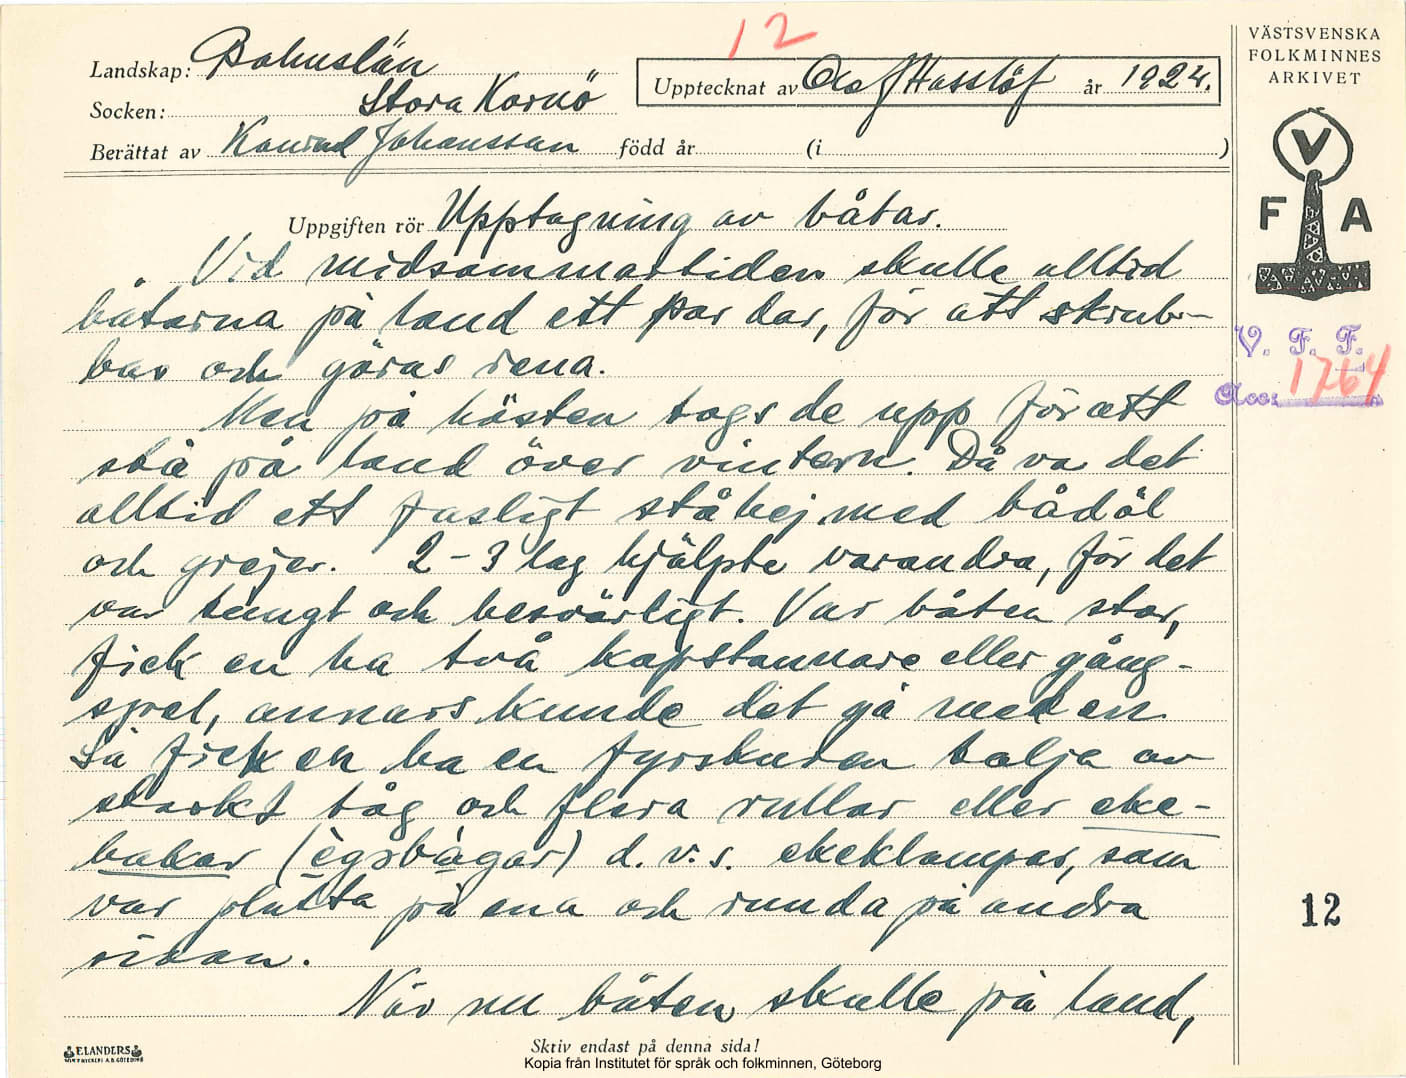 12
VÄSTSVENSKA
FOLKMINNES
ARKIVET
Landskap: Bohuslän
Upptecknat av Olof Hasslöf år 1924.
Socken: Stora Kornö
Berättat av Konrad Johansson född år (i )
V
F A
Uppgiften rör Upptagning av båtar.
Vid midsommartiden skulle alltid
båtarna på land ett par dar, för att skrub-
bas och göras rena.
V. F. F.
Acc: 1764
Men på hösten togs de upp för att
stå på land över vintern. Då va det
alltid ett fasligt ståhej med bådöl
och grejer. 2-3 lag hjälpte varandra, för det
var tungt och besvärligt. Var båten stor,
fick en ha två kapstannare eller gång-
spel, annars kunde det gå med en
Så fick en ha en fyrskuren talja av
starkt tåg och flera rullar eller eke-
bakar (ègsbågar) d.v.s. ekeklampar, som
var platta på ena och runda på andra
sidan.
När nu båten skulle på land,
12
ELANDERS
Skriv endast på denna sida!
Kopia från Institutet för språk och folkminnen, Göteborg